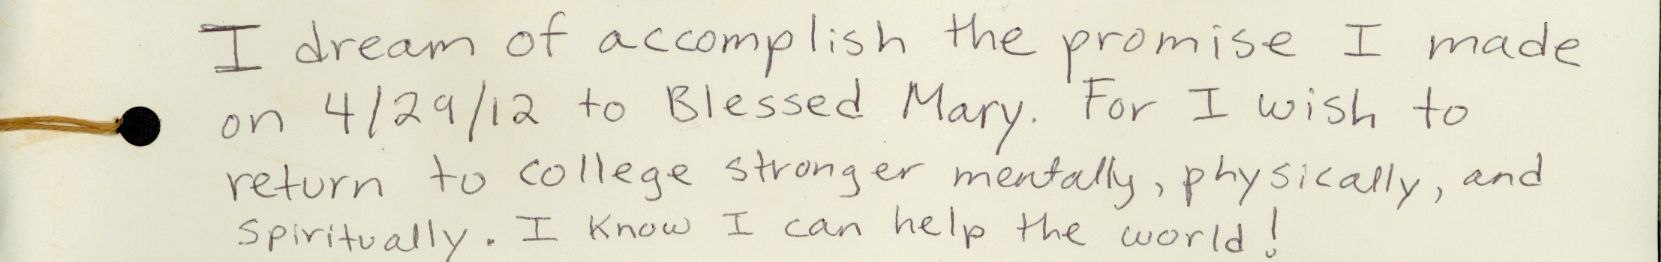 I dream of accomplish the promise I made
on 4/29/12 to Blessed Mary. For I wish to
return to college stronger mentally, physically, and
spiritually. I know I can help the world!